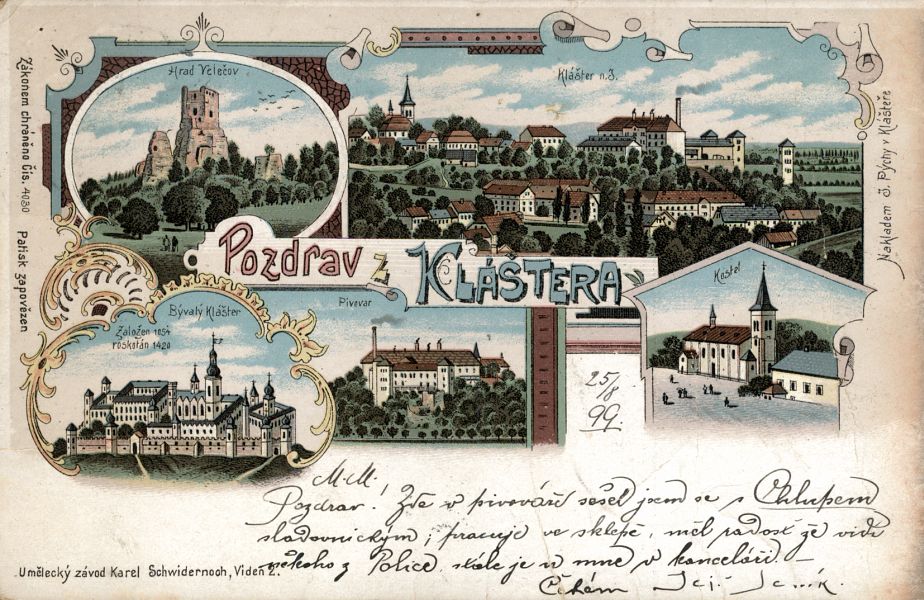 Hrad Velečov
Klášter n. J.
Zákonem chráněno čís. 4080 Patisk zapovězen
Nákladem J. Pýchy v Klášteře
Pozdrav z KLÁŠTERA
Kostel
Bývalý Klášter
Založen 1054
roskotán 1420
Pivovar
25/8
99.
M. M.
Pozdrav! Zde v pivováře sešel jsem se s Chlupem
sladovnickým; pracuje ve sklepě, měl radost že vidí
někoho z Police, stále je u mne v kanceláři. –
Čekám Jeník.
Umělecký závod Karel Schwidernoch, Videň 2.